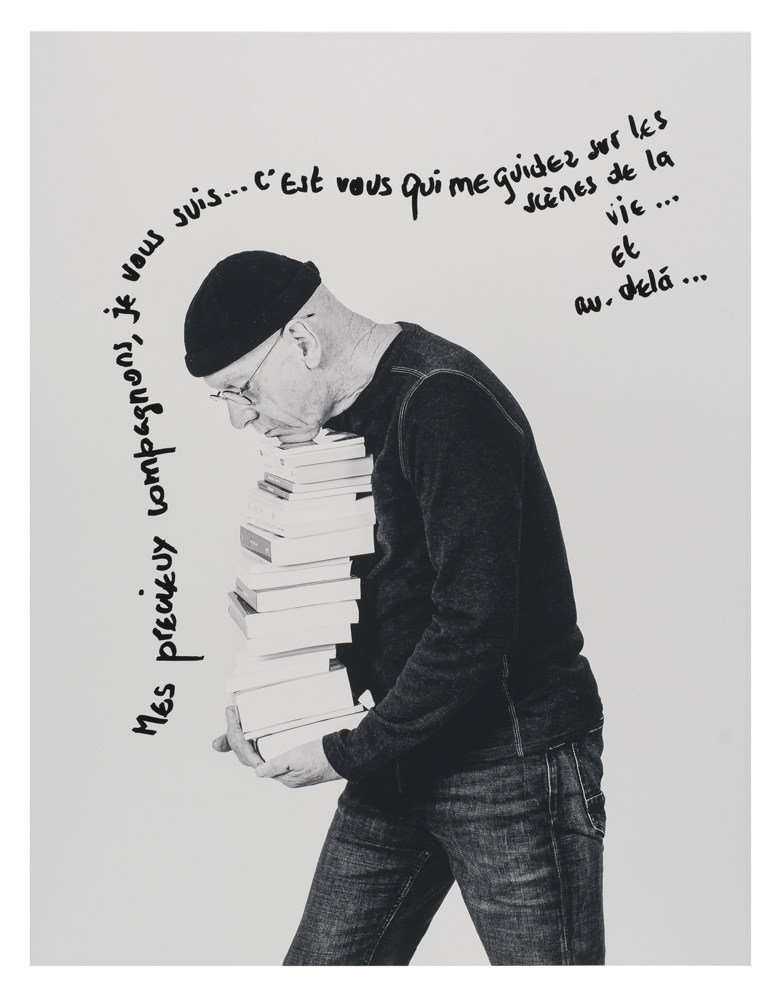 Mes precieux compagnons, je vous suis... C'est vous qui me guidez sur les
scènes de la
vie ...
et
au. delà ...